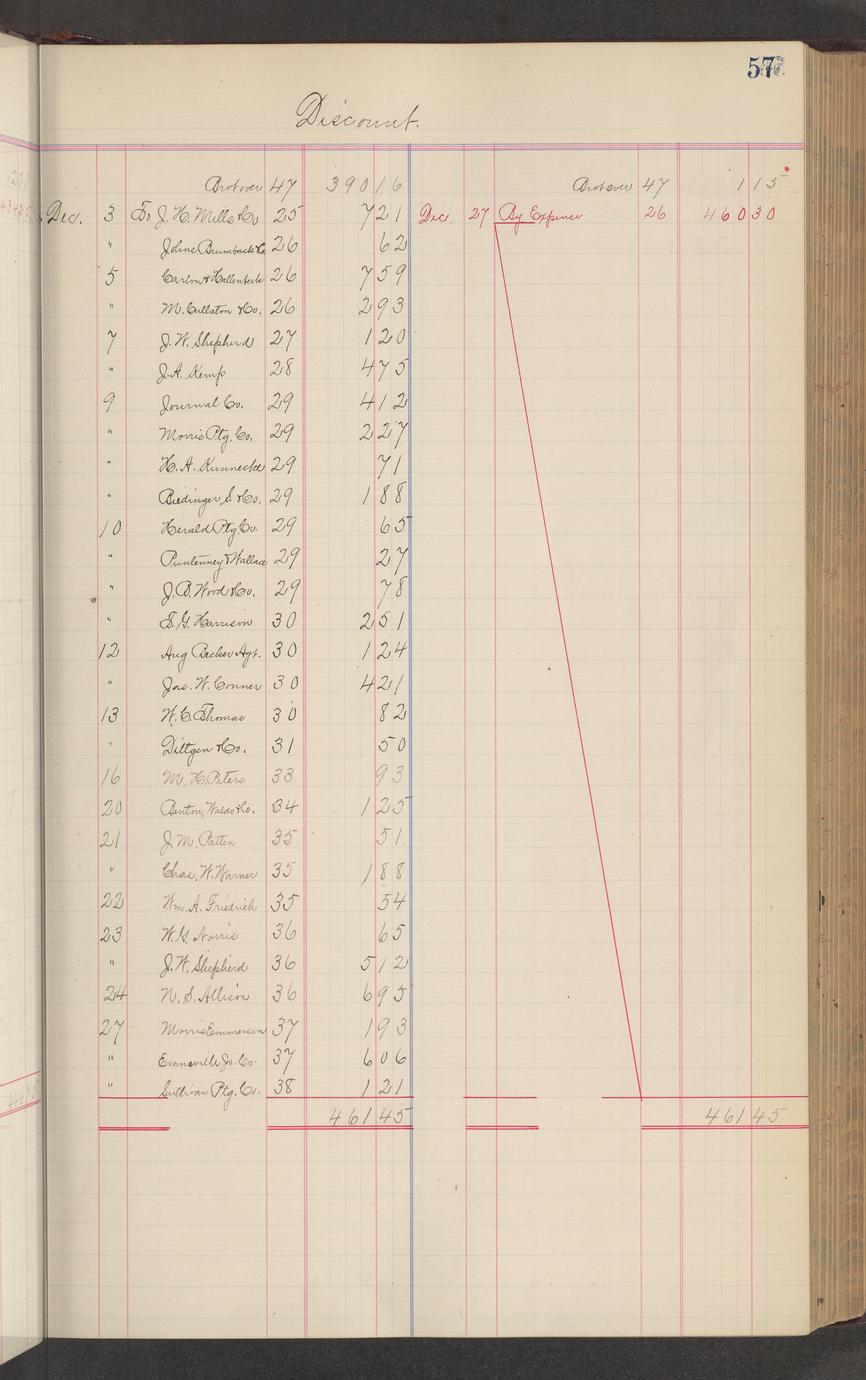 57
Discount.
Brot over 47 390 16 Brot over 47 1 15
Dec. 3 To J. H. Mills & Co 25 7 21 Dec. 27 By Expense 26 460 30
" Johns Brumback & Co. 26 62
5 Carlon & Hallenbeck 26 7 59
" M. Cullaton & Co. 26 2 93
7 J. W. Shepherd 27 1 20
" J. A. Kemp 28 4 75
9 Journal Co. 29 4 12
" Morris Ptg. Co. 29 2 27
" H. A. Kunnecke 29 71
" Biedinger, S & Co. 29 1 88
10 Herald Ptg Co. 29 65
" Puntenney & Wallace 29 27
" J. B. Wood & Co. 29 78
" T. G. Harrison 30 2 51
12 Aug. Becker Agt. 30 1 24
" Jas. W. Conner 30 4 21
13 W. C. Thomas 30 82
" Dittgen & Co. 31 50
16 M. H. Peters 33 93
20 Benton, Waldo & Co. 34 1 25
21 J. M. Patten 35 51
" Chas. W. Warner 35 1 88
22 Wm. A. Friedrich 35 54
23 W. G. Norris 36 65
" J. W. Shepherd 36 5 12
24 N. S. Allison 36 6 95
27 Morris Emmerson 37 1 93
" Evansville Jo. Co. 37 6 06
" Sullivan Ptg. Co. 38 1 21
461 45 461 45